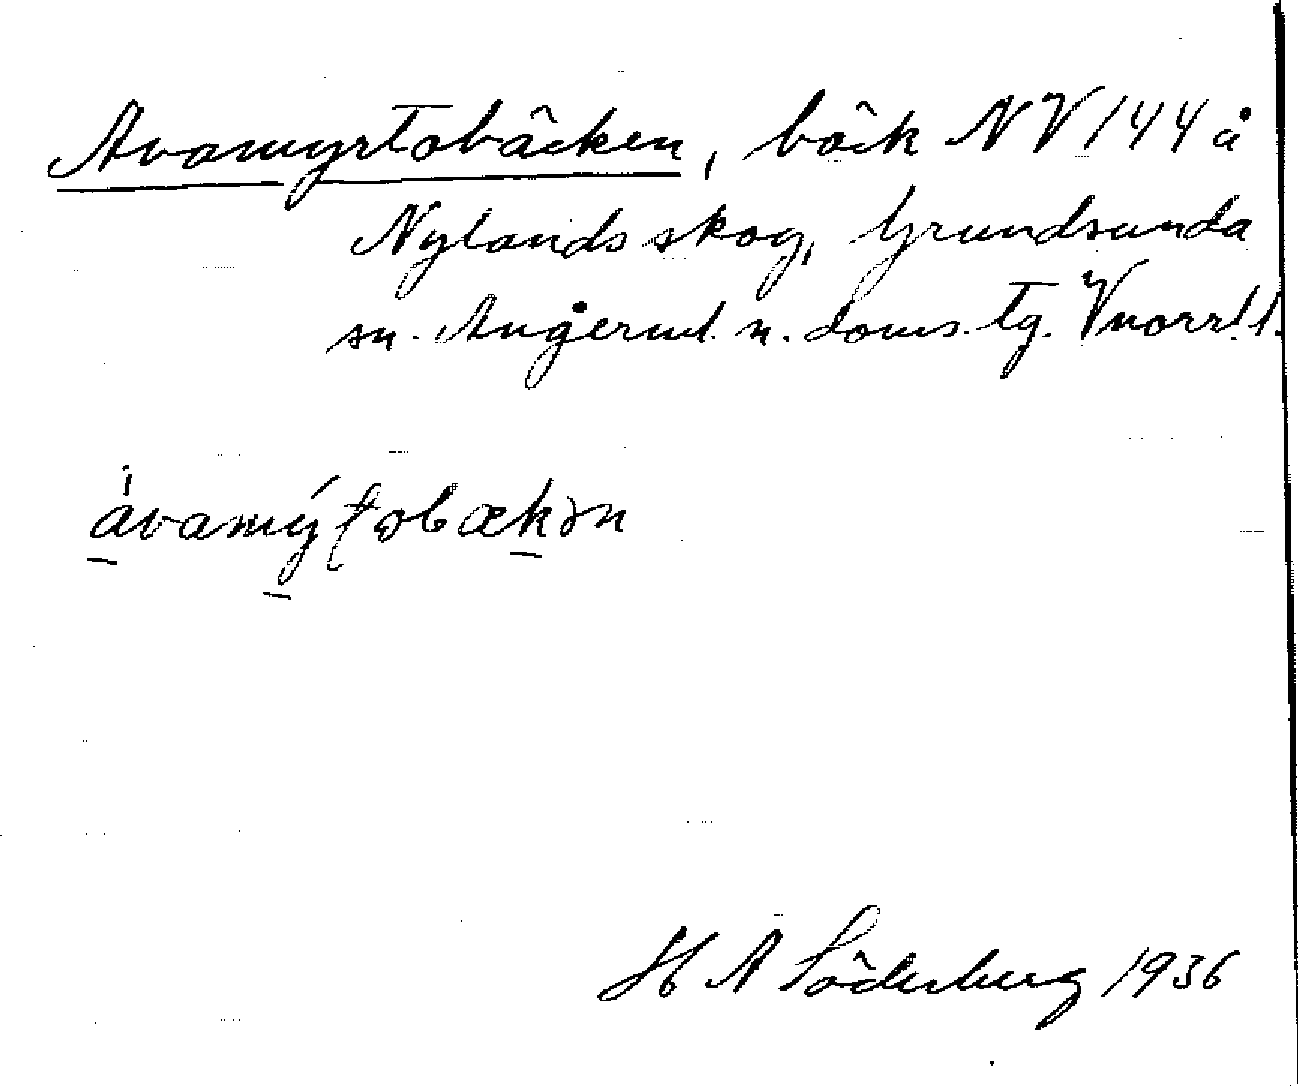 Avamyrtobäcken, bäck NV 144 å
Nylands skog, Grundsunda
sn. Ångerml. n. doms. tg. Vnorrl. l.
ávamýt̨obækən
H A Söderberg 1936